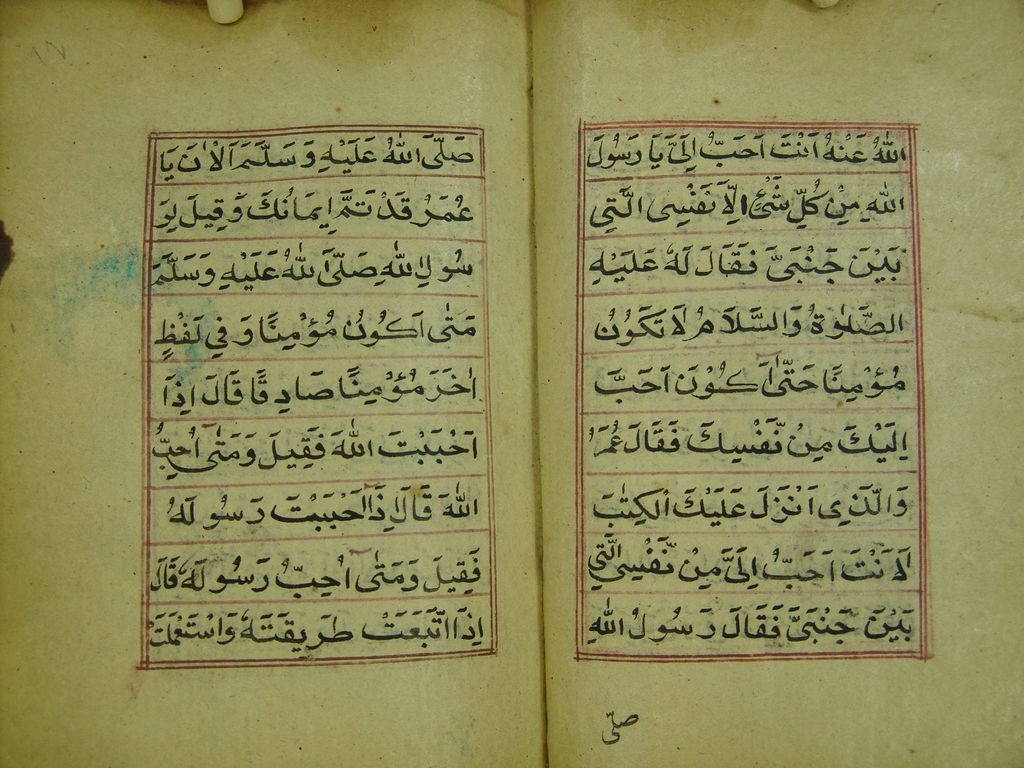 اللهُ عَنْهُ اَنْتَ اَحَبُّ اِلَىَّ يَا رَسُولَ
اللهِ مِنْ كُلِّ شَىْءٍ اِلَّا نَفْسِى الَّتِى
بَيْنَ جَنْبَىَّ فَقَالَ لَهٗ عَلَيْهِ
الصَّلٰوةُ وَالسَّلَامُ لَا تَكُوْنُ
مُؤْمِنًا حَتّٰى اَكُوْنَ اَحَبَّ
اِلَيْكَ مِنْ نَّفْسِكَ فَقَالَ عُمَرُ
وَالَّذِى اَنْزَلَ عَلَيْكَ الْكِتٰبَ
لَاَنْتَ اَحَبُّ اِلَىَّ مِنْ نَّفْسِى الَّتِى
بَيْنَ جَنْبَىَّ فَقَالَ رَسُولُ اللهِ
صلّى
صَلَّى اللهُ عَلَيْهِ وَسَلَّمَ اَلْاٰنَ يَا
عُمَرُ قَدْ تَمَّ اِيمَانُكَ وَقِيلَ لِرَ
سُولِ اللهِ صَلَّى اللهُ عَلَيْهِ وَسَلَّمَ
مَتٰى اَكُونُ مُؤْمِنًا وَفِى لَفْظٍ
اٰخَرَ مُؤْمِنًا صَادِقًا قَالَ اِذَا
اَحْبَبْتَ اللهَ فَقِيلَ وَمَتٰى اُحِبُّ
اللهَ قَالَ اِذَا اَحْبَبْتَ رَسُولَهُ
فَقِيلَ وَمَتٰى اُحِبُّ رَسُولَهٗ قَالَ
اِذَا اتَّبَعْتَ طَرِيقَتَهٗ وَاسْتَعْمَلْتَ